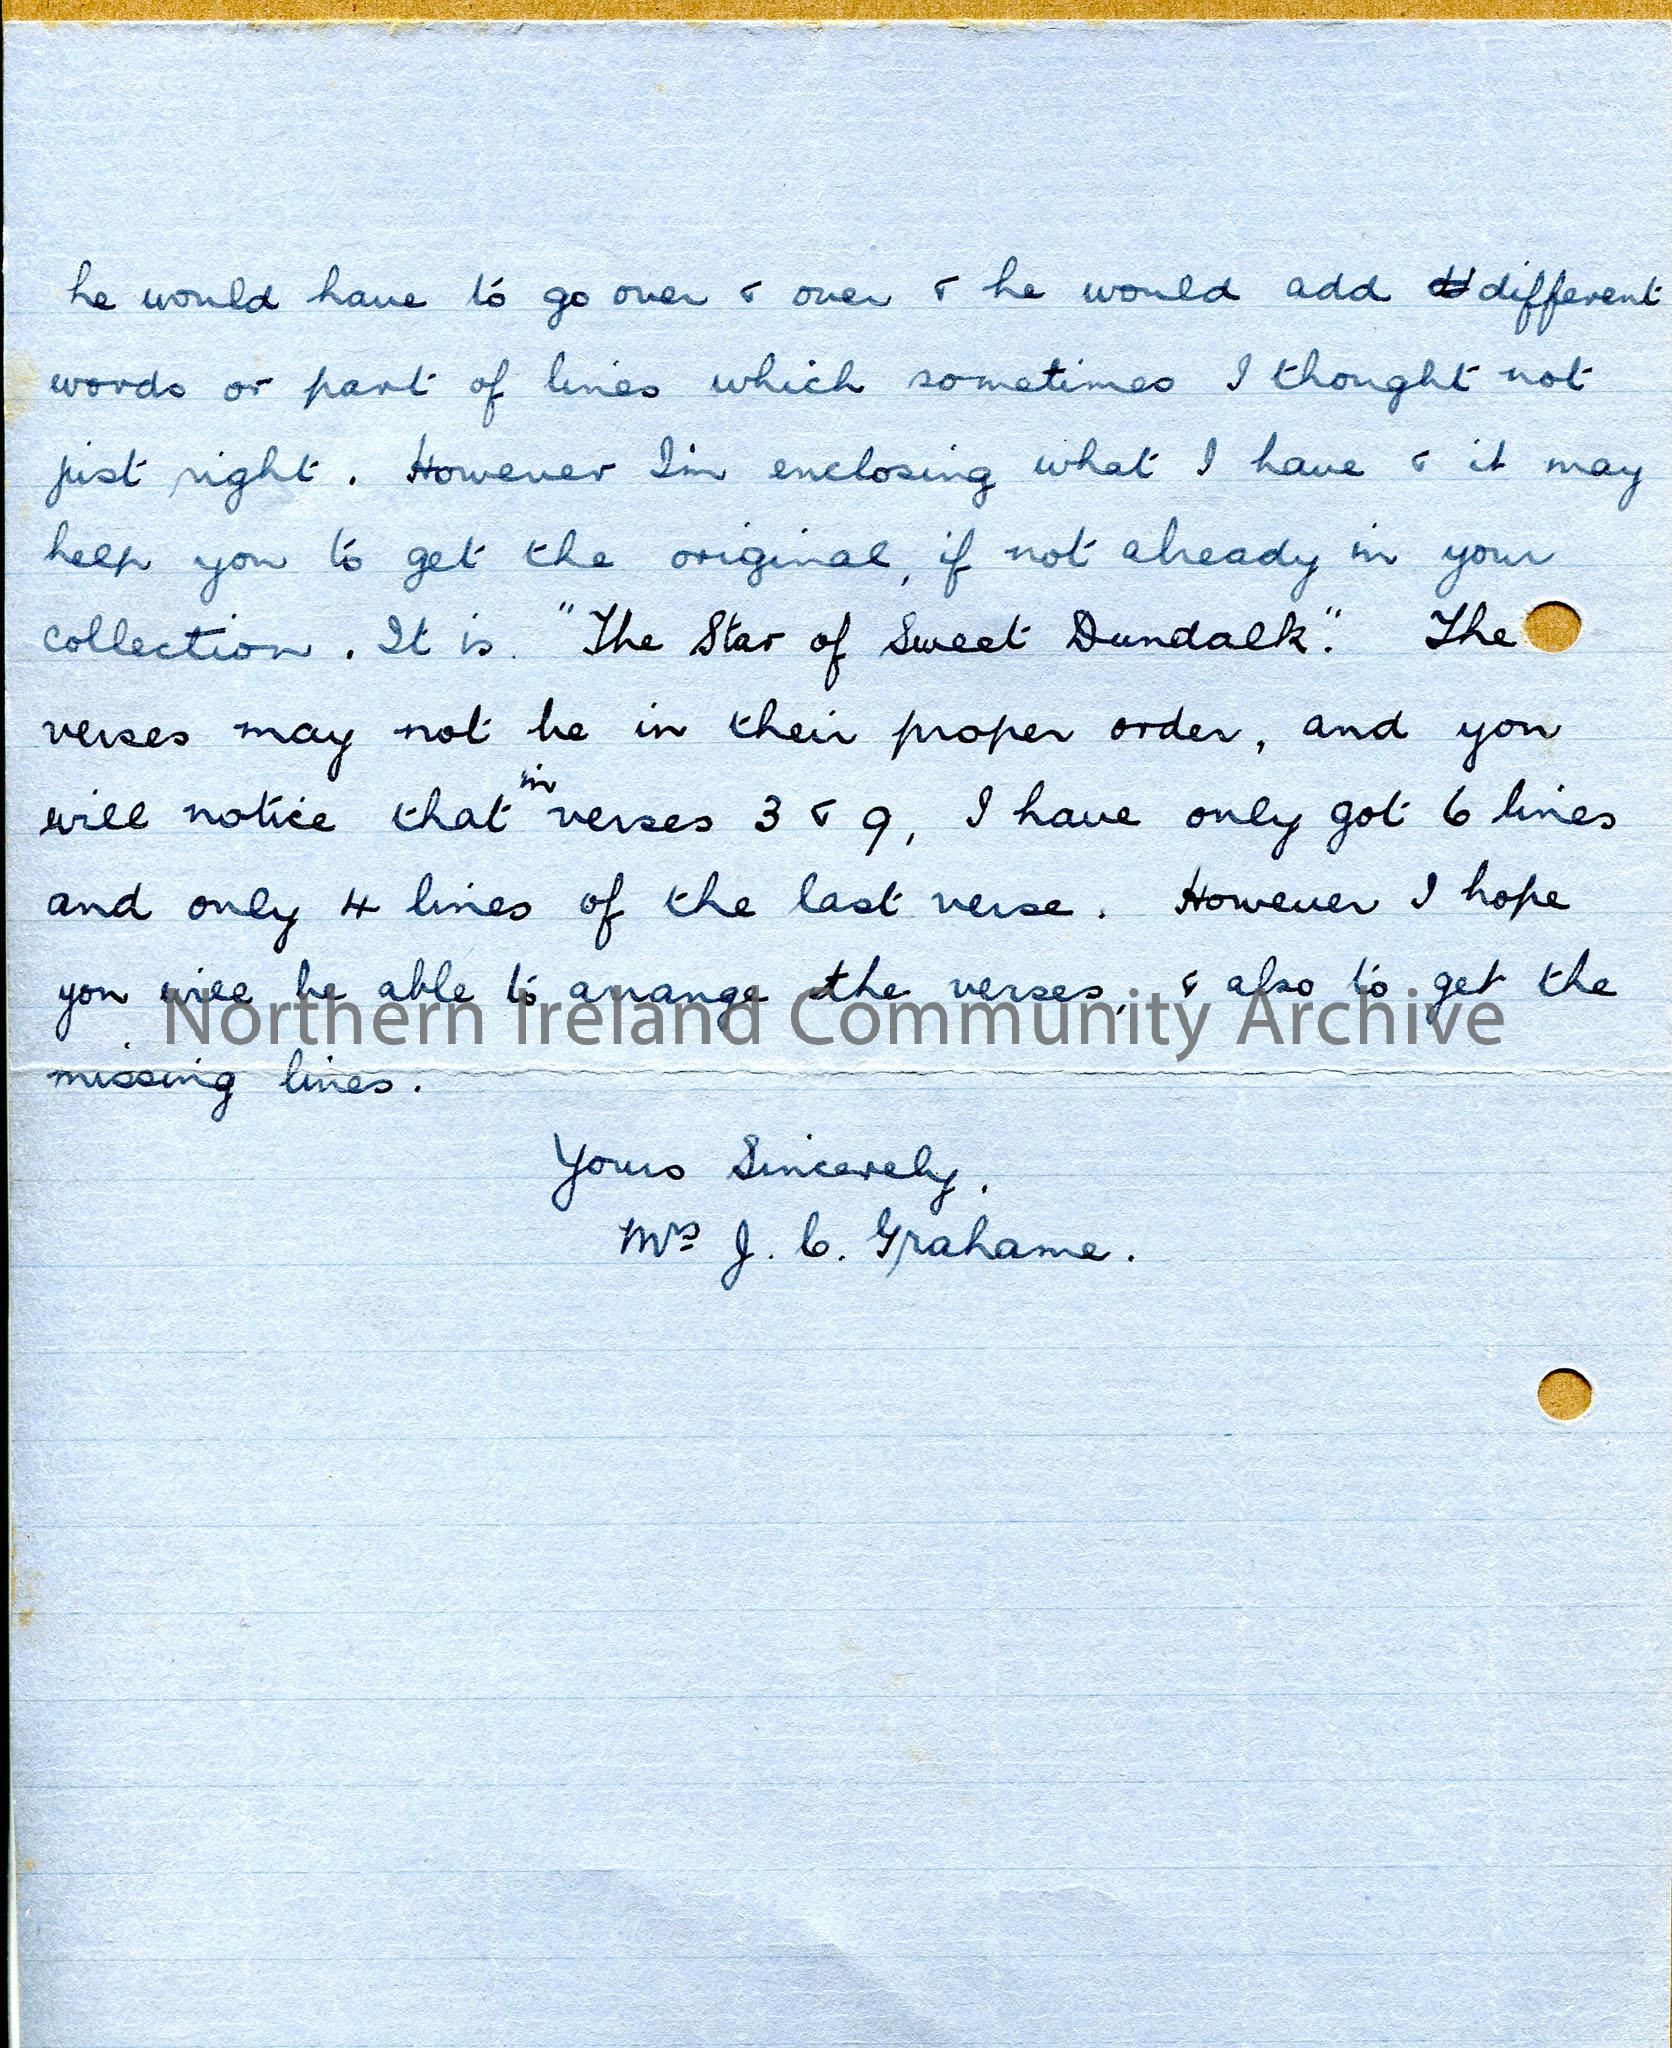 he would have to go over & over & he would add different
words or part of lines which sometimes I thought not
just right. However I'm enclosing what I have & it may
help you to get the original, if not already in your
collection. It is "The Star of Sweet Dundalk." The
verses may not be in their proper order, and you
will notice that in verses 3 & 9, I have only got 6 lines
and only 4 lines of the last verse. However I hope
you will be able to arrange the verses, & also to get the
Northern Ireland Community Archive
missing lines.
Yours Sincerely,
Mrs J. C. Grahame.